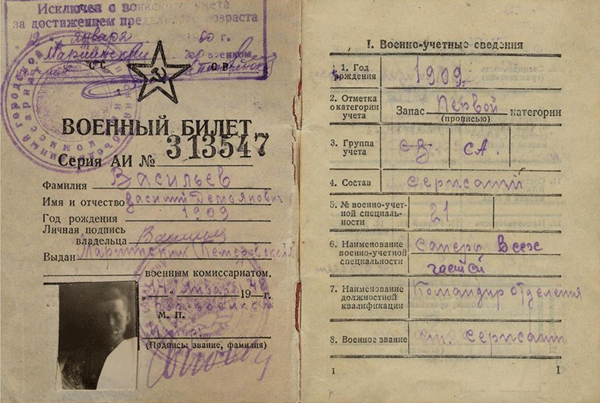 Исключен с воинского учета
за достижением предельного возраста
января
СС ОР
ВОЕННЫЙ БИЛЕТ
Серия АИ № 313547
Фамилия Васильев
Имя и отчество Василий Демьянович
Год рождения 1909
Личная подпись
владельца
Выдан
военным комиссариатом.
января 48
19—г.
М. П.
(Подпись, звание, фамилия)
I. Военно-учетные сведения
1. Год рождения 1909
2. Отметка о категории учета Запас Первой категории
(прописью)
3. Группа учета СА.
4. Состав сержант
5. № военно-учетной специальности 21
6. Наименование военно-учетной специальности Саперы всех частей
7. Наименование должностной квалификации Командир отделения
8. Военное звание ст. сержант
1 1